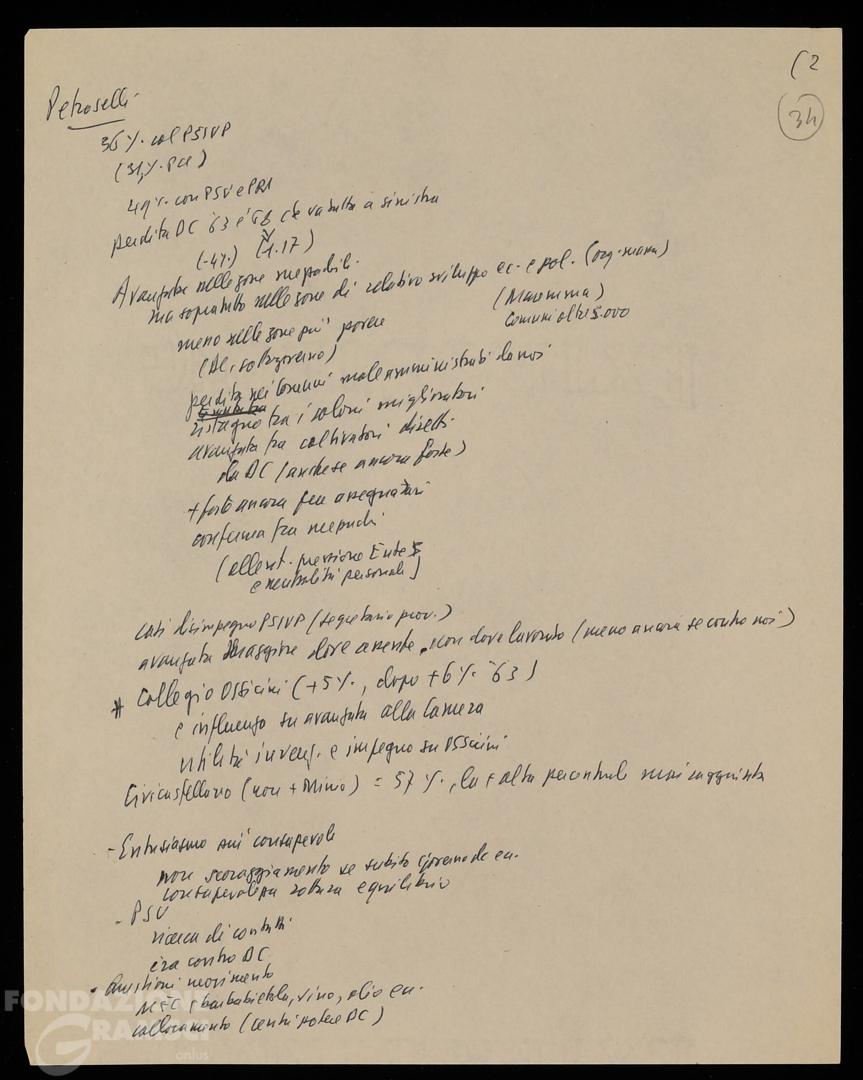 (2
34
Petroselli
36%. col PSIUP
(31,%. PCI)
49%. con PSU e PRI
perdita DC '63 è che va tutta a sinistra
(-4%.) (1.17)
Avanzata nelle zone mezzadrili.
ma soprattutto nelle zone di relativo sviluppo ec. e pol. (org. massa)
(Maremma)
Comuni oltre 5.000
meno nelle zone più povere
(DC, sottogoverno)
perdita nei Comuni male amministrati da noi
ristagno tra i coloni miglioratari
avanzata tra coltivatori diretti.
da DC (anche se ancora forte)
+ forte ancora fra assegnatari
conferma fra mezzadri
(allent. pressione Ente S
e neutralità personale)
casi disimpegno PSIUP (segretario prov.)
avanzata maggiore dove assente, non dove lavorato (meno ancora se contro noi)
* Collegio Ossicini (+5%., dopo +6%. '63)
e influenza su avanzata alla Camera
utilità e impegno su Ossicini
Civitacastellana (non + Minio) = 57%., la + alta percentuale mai raggiunta
- Entusiasmo più consapevole
non scoraggiamento se subito governo dc ecc.
consapevolezza rottura equilibrio
- PSU
ricerca di contatti
era contro DC
- Questioni movimento
MEC, barbabietola, vino, olio ecc.
collocamento (centri potere DC)
FONDAZIONE
GRAMSCI
onlus